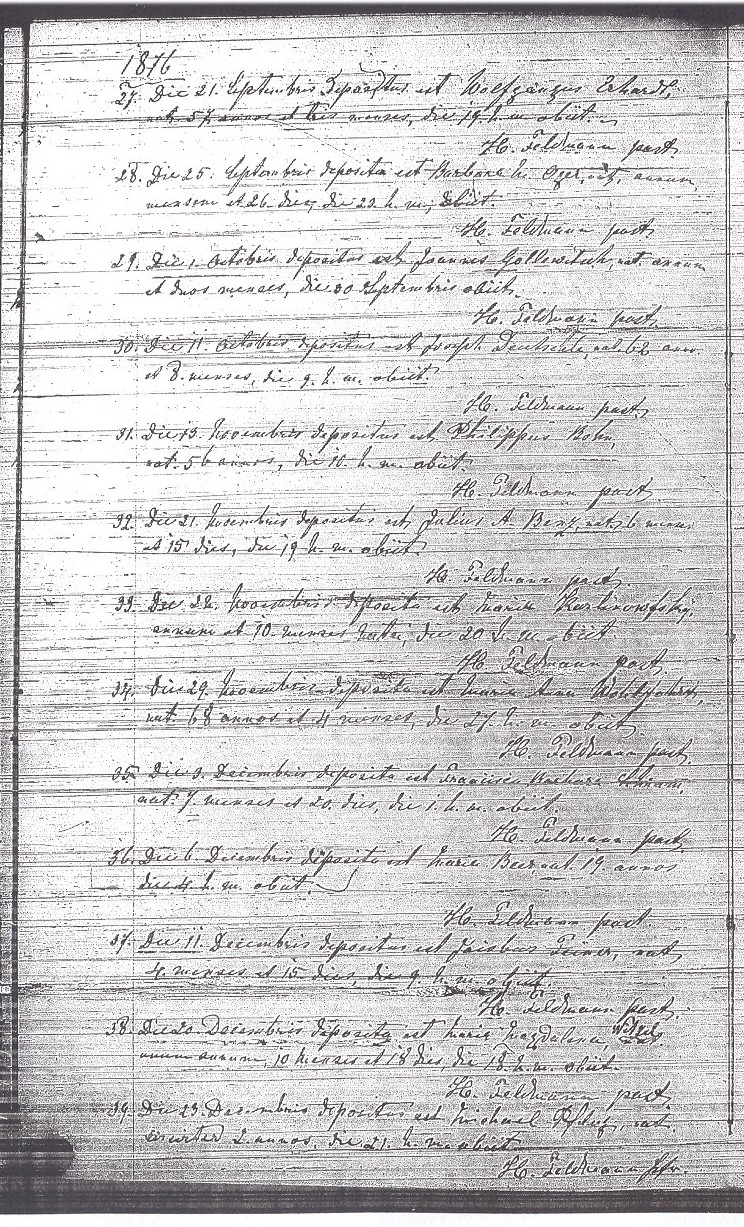 1876
27. Die 21. Septembris depositus est Wolfgangus Erhardt,
nat. 57 annos et tres menses, die 19. h. m. obiit.
H. Feldmann past.
28. Die 25. Septembris deposita est Barbara M. nat. annum,
mensem et 26. dies, die 23. h. m. obiit.
H. Feldmann past.
29. Die 1. Octobris depositus est Joannes Gollowitsch, nat. annum
et duos menses, die 30 Septembris obiit.
H. Feldmann past.
30. Die 11. Octobris depositus est Joseph Deutschle, nat. 62 annos
et 8. menses, die 9. h. m. obiit.
H. Feldmann past.
31. Die 13. Novembris depositus est Philippus Bohn,
nat. 56 annos, die 10. h. m. obiit.
H. Feldmann past.
32. Die 21. Novembris depositus est Julius A. Benz, nat. 6 mens.
et 15 dies, die 19 h. m. obiit.
H. Feldmann past.
33. Die 22. Novembris deposita est Maria Karlinowsky,
annum et 10. menses nata, die 20 h. m. obiit
H. Feldmann past.
34. Die 29. Novembris deposita est Maria Anna
nat. 68 annos et 4 menses, die 27. h. m. obiit.
H. Feldmann past.
35. Die 3. Decembris deposita est Francisca Barbara
nat. 7. menses et 20. dies, die 1. h. m. obiit.
H. Feldmann past.
36. Die 6. Decembris deposita est Maria nat. 19. annos
die 4. h. m. obiit.
H. Feldmann past.
37. Die 11. Decembris depositus est Jacobus nat.
4. menses et 15. dies, die 9. h. m. obiit.
H. Feldmann past.
38. Die 20. Decembris deposita est Maria Magdalena
unum annum, 10 menses et 18 dies, die 18. h. m. obiit.
H. Feldmann past.
39. Die 23. Decembris depositus est Michael nat.
circiter 2. annos, die 21. h. m. obiit.
H. Feldmann